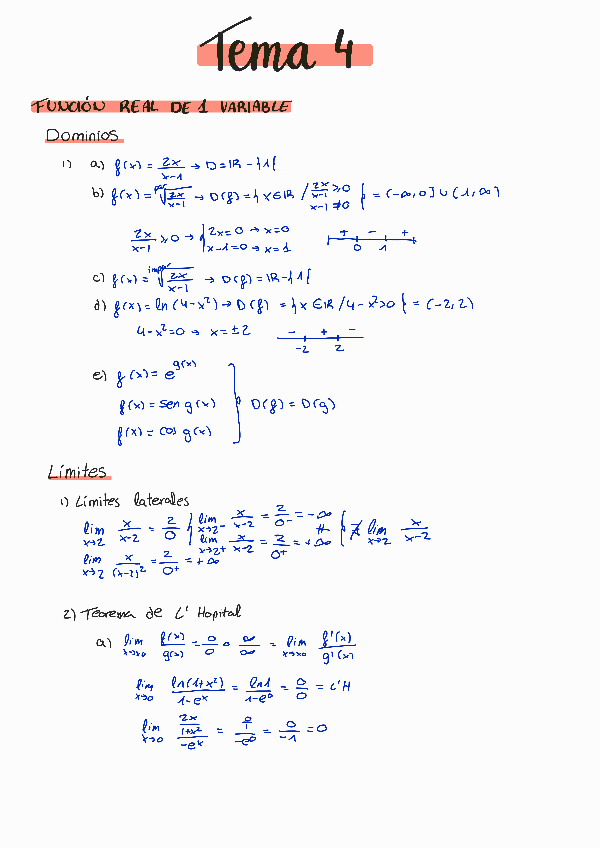 Tema 4
FUNCIÓN REAL DE 1 VARIABLE
Dominios
1) a) f(x) = 2x/(x-1) → D = IR - {1}
b) f(x) = par√(2x/(x-1)) → D(f) = {x ∈ IR / 2x/(x-1) ≥ 0, x-1 ≠ 0} = (-∞, 0] ∪ (1, ∞)
2x/(x-1) ≥ 0 → { 2x = 0 → x = 0, x-1 = 0 → x = 1 + - + 0 1
c) f(x) = impar√(2x/(x-1)) → D(f) = IR - {1}
d) f(x) = ln(4-x²) → D(f) = {x ∈ IR / 4-x² > 0} = (-2, 2)
4-x² = 0 → x = ±2 - + - -2 2
e) f(x) = e^g(x)
f(x) = sen g(x) } D(f) = D(g)
f(x) = cos g(x)
Límites
1) Límites laterales
lim x→2 x/(x-2) = 2/0 { lim x→2⁻ x/(x-2) = 2/0⁻ = -∞ ≠ lim x→2⁺ x/(x-2) = 2/0⁺ = +∞ } ∄ lim x→2 x/(x-2)
lim x→2 x/(x-2)² = 2/0⁺ = +∞
2) Teorema de L' Hopital
a) lim x→x0 f(x)/g(x) = 0/0 o ∞/∞ = lim x→x0 f'(x)/g'(x)
lim x→0 ln(1+x²)/(1-eˣ) = ln1/(1-e⁰) = 0/0 = L'H
lim x→0 (2x/(1+x²))/(-eˣ) = (0/1)/(-e⁰) = 0/-1 = 0